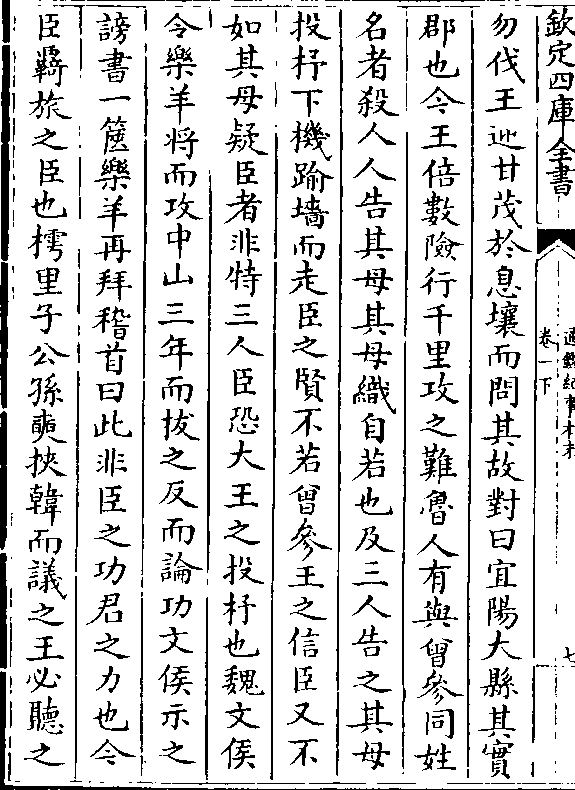 欽定四庫全書
通鑑紀事本末
卷一下
七
勿伐王迎甘茂於息壤而問其故對曰宜陽大縣其實
郡也今王倍數險行千里攻之難魯人有與曾參同姓
名者殺人人告其母其母織自若也及三人告之其母
投杼下機踰墻而走臣之賢不若曾參王之信臣又不
如其母疑臣者非特三人臣恐大王之投杼也魏文侯
令樂羊将而攻中山三年而拔之反而論功文侯示之
謗書一篋樂羊再拜稽首曰此非臣之功君之力也今
臣羇旅之臣也樗里子公孫奭挾韓而議之王必聽之